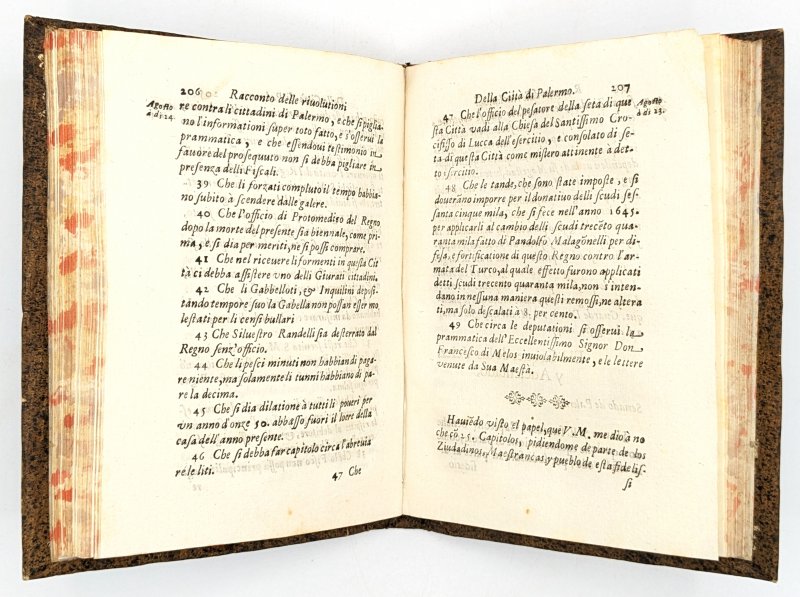 206 Racconto delle riuolutioni
Agosto
à di 24.
re contra li cittadini di Palermo, e che si piglia-
no l'informationi super toto fatto, e s'osserui la
prammatica, e che essendoui testimonio in
fauore del prosequuto non si debba pigliare in
presenza delli Fiscali.
39 Che li forzati compluto il tempo habbia-
no subito à scendere dalle galere.
40 Che l'officio di Protomedico del Regno
dopo la morte del presente sia biennale, come pri-
ma, e si dia per meriti, ne si possi comprare.
41 Che nel riceuere li formenti in questa Cit
tà ci debba assistere vno delli Giurati cittadini.
42 Che li Gabbelloti, & Inquilini deposi-
tando tempore suo la Gabella non possan esser mo
lestati per li censi bullari
43 Che Siluestro Randelli sia desterrato dal
Regno senz'officio.
44 Che li pesci minuti non habbian di paga-
re niente, ma solamente li tunni habbiano di pa-
re la decima.
45 Che si dia dilatione à tutti li poueri per
vn anno d'onze 50. abbasso fuori il loere della
casa dell'anno presente.
46 Che si debba far capitolo circa l'abreuia
re le liti.
47 Che
Della Città di Palermo. 207
Agosto
à di 23.
47 Che l'officio del pesatore della seta di que
sta Città vadi alla Chiesa del Santissimo Cro-
cifisso di Lucca dell'esercitio, e consolato di se-
ta di questa Città come mistero attinente à det-
to esercitio.
48 Che le tande, che sono state imposte, e si
doueranno imporre per il donatiuo delli scudi ses-
santa cinque mila, che si fece nell'anno 1645.
per applicarli al cambio delli scudi trecēto qua-
ranta mila fatto di Pandolfo Malagōnelli per di-
fesa, e fortificatione di questo Regno contro l'ar-
mata del Turco, al quale effetto furono applicati
detti scudi trecento quaranta mila, non s'inten-
dano in nessuna maniera questi remossi, ne altera
ti, ma solo descalati à 8. per cento.
49 Che circa le deputationi si osserui la
prammatica dell'Eccellentissimo Signor Don
Francesco di Melos inuiolabilmente, e le lettere
venute da Sua Maestà.
Hauiēdo visto el papel, que V.M. me diò à no
che cō 25. Capitolos, pidiendome de parte de los
Ziudadinos, Maestrancas y pueblo de esta fidelis-
si